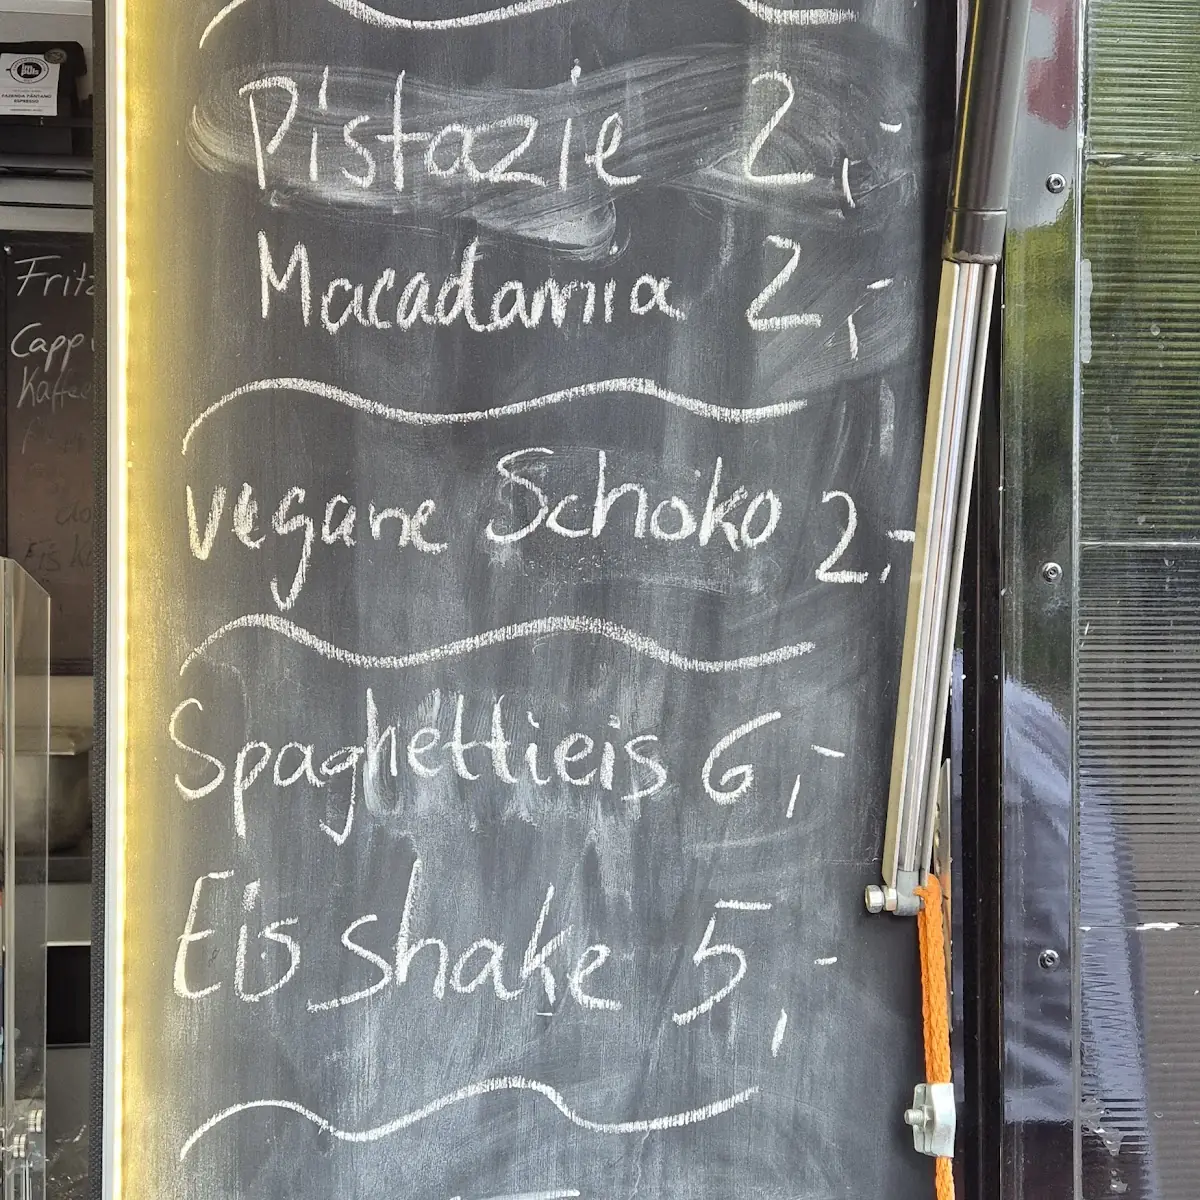 Pistazie 2,-
Macadamia 2,-
vegane Schoko 2,-
Spaghettieis 6,-
Eis shake 5,-
FAZENDA PÂNTANO
ESPRESSO
Fritz
Capp
Kaffee
Eis